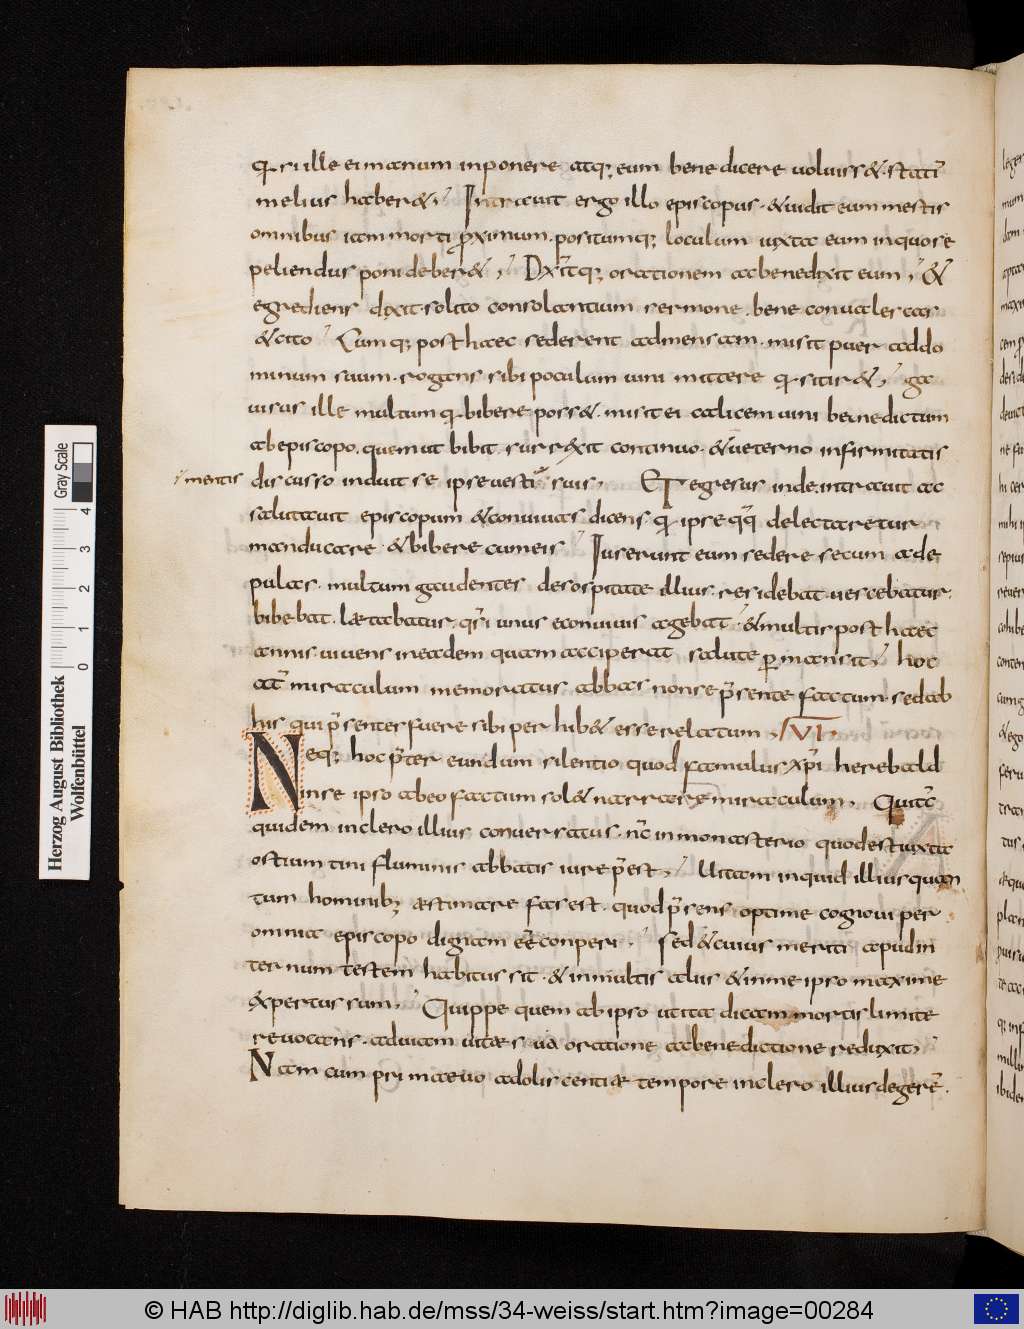 q̄ si ille ei manum inponere atq; eum benedicere uoluiss&. stati͂
melius haber&; Intrauit ergo illo episcopus. & uidit eum mestis
omnibus iam morti ꝓximum. positumq; loculum iuxta eum in quo se
peliendus poni deber&; Dx̄itq; orationem ac benedixit eum; &
egrediens dixit. solito consolantium sermone. bene conualescas
& cito; Cumq; post haec sederent ad mensam. misit puer ad do
minum suum. rogans sibi poculum uini mittere q̄ sitir&; ga
uisus ille multum q̄ bibere poss&. misit ei calicem uini benedictum
ab episcopo. quem ut bibit. surrexit continuo. & ueterno infirmitatis
mentis
discusso induit se ipse uesti suis; ET egresus inde intrauit ac
salutauit episcopum & conuiuas dicens. q̄ ipse qq̄ delectaretur
manducare. & bibere cum eis; Iuserunt eum sedere secum ad e
pulas. multum gaudentes de sospitate illius. residebat. uescebatur.
bibebat. lætabatur. qs̄i unus e conuiuis agebat; & multis post haec
annis. uiuens in eadem quam acciperat salute p̱mansit; hoc
at̄ miraculum memoratus abbas non se p̄sente factum. sed ab
his qui p̄senter fuere sibi perhib& esse relatum; VI.
Neq; hoc p̄ter eundum silentio quod famulus xp̄i herebald
in se ipso ab eo factum sol& narrare miraculum; Qui tc̄
quidem in clero illius conuersatus. nc̄ in monasterio quod est iuxta
ostium tini fluminis abbatis iure p̄est; Uitam inquid illius quan
tum hominib; æstimare fas est. quod p̄sens optime cognoui per
omnia episcopo dignam eē conperi; Sed & cuius meriti apud in
ternum testem habitus sit. & in multis aliis & in me ipso maxime
expertus sum; Quippe quem ab ipso ut ita dicam mortis limite
reuocans. ad uiam uitæ sua oratione ac benedictione reduxit;
Nam cum primaeuo adoliscentiæ tempore in clero illius degere͂.
Gray Scale
0 1 2 3 4
Herzog August Bibliothek
Wolfenbüttel
© HAB http://diglib.hab.de/mss/34-weiss/start.htm?image=00284